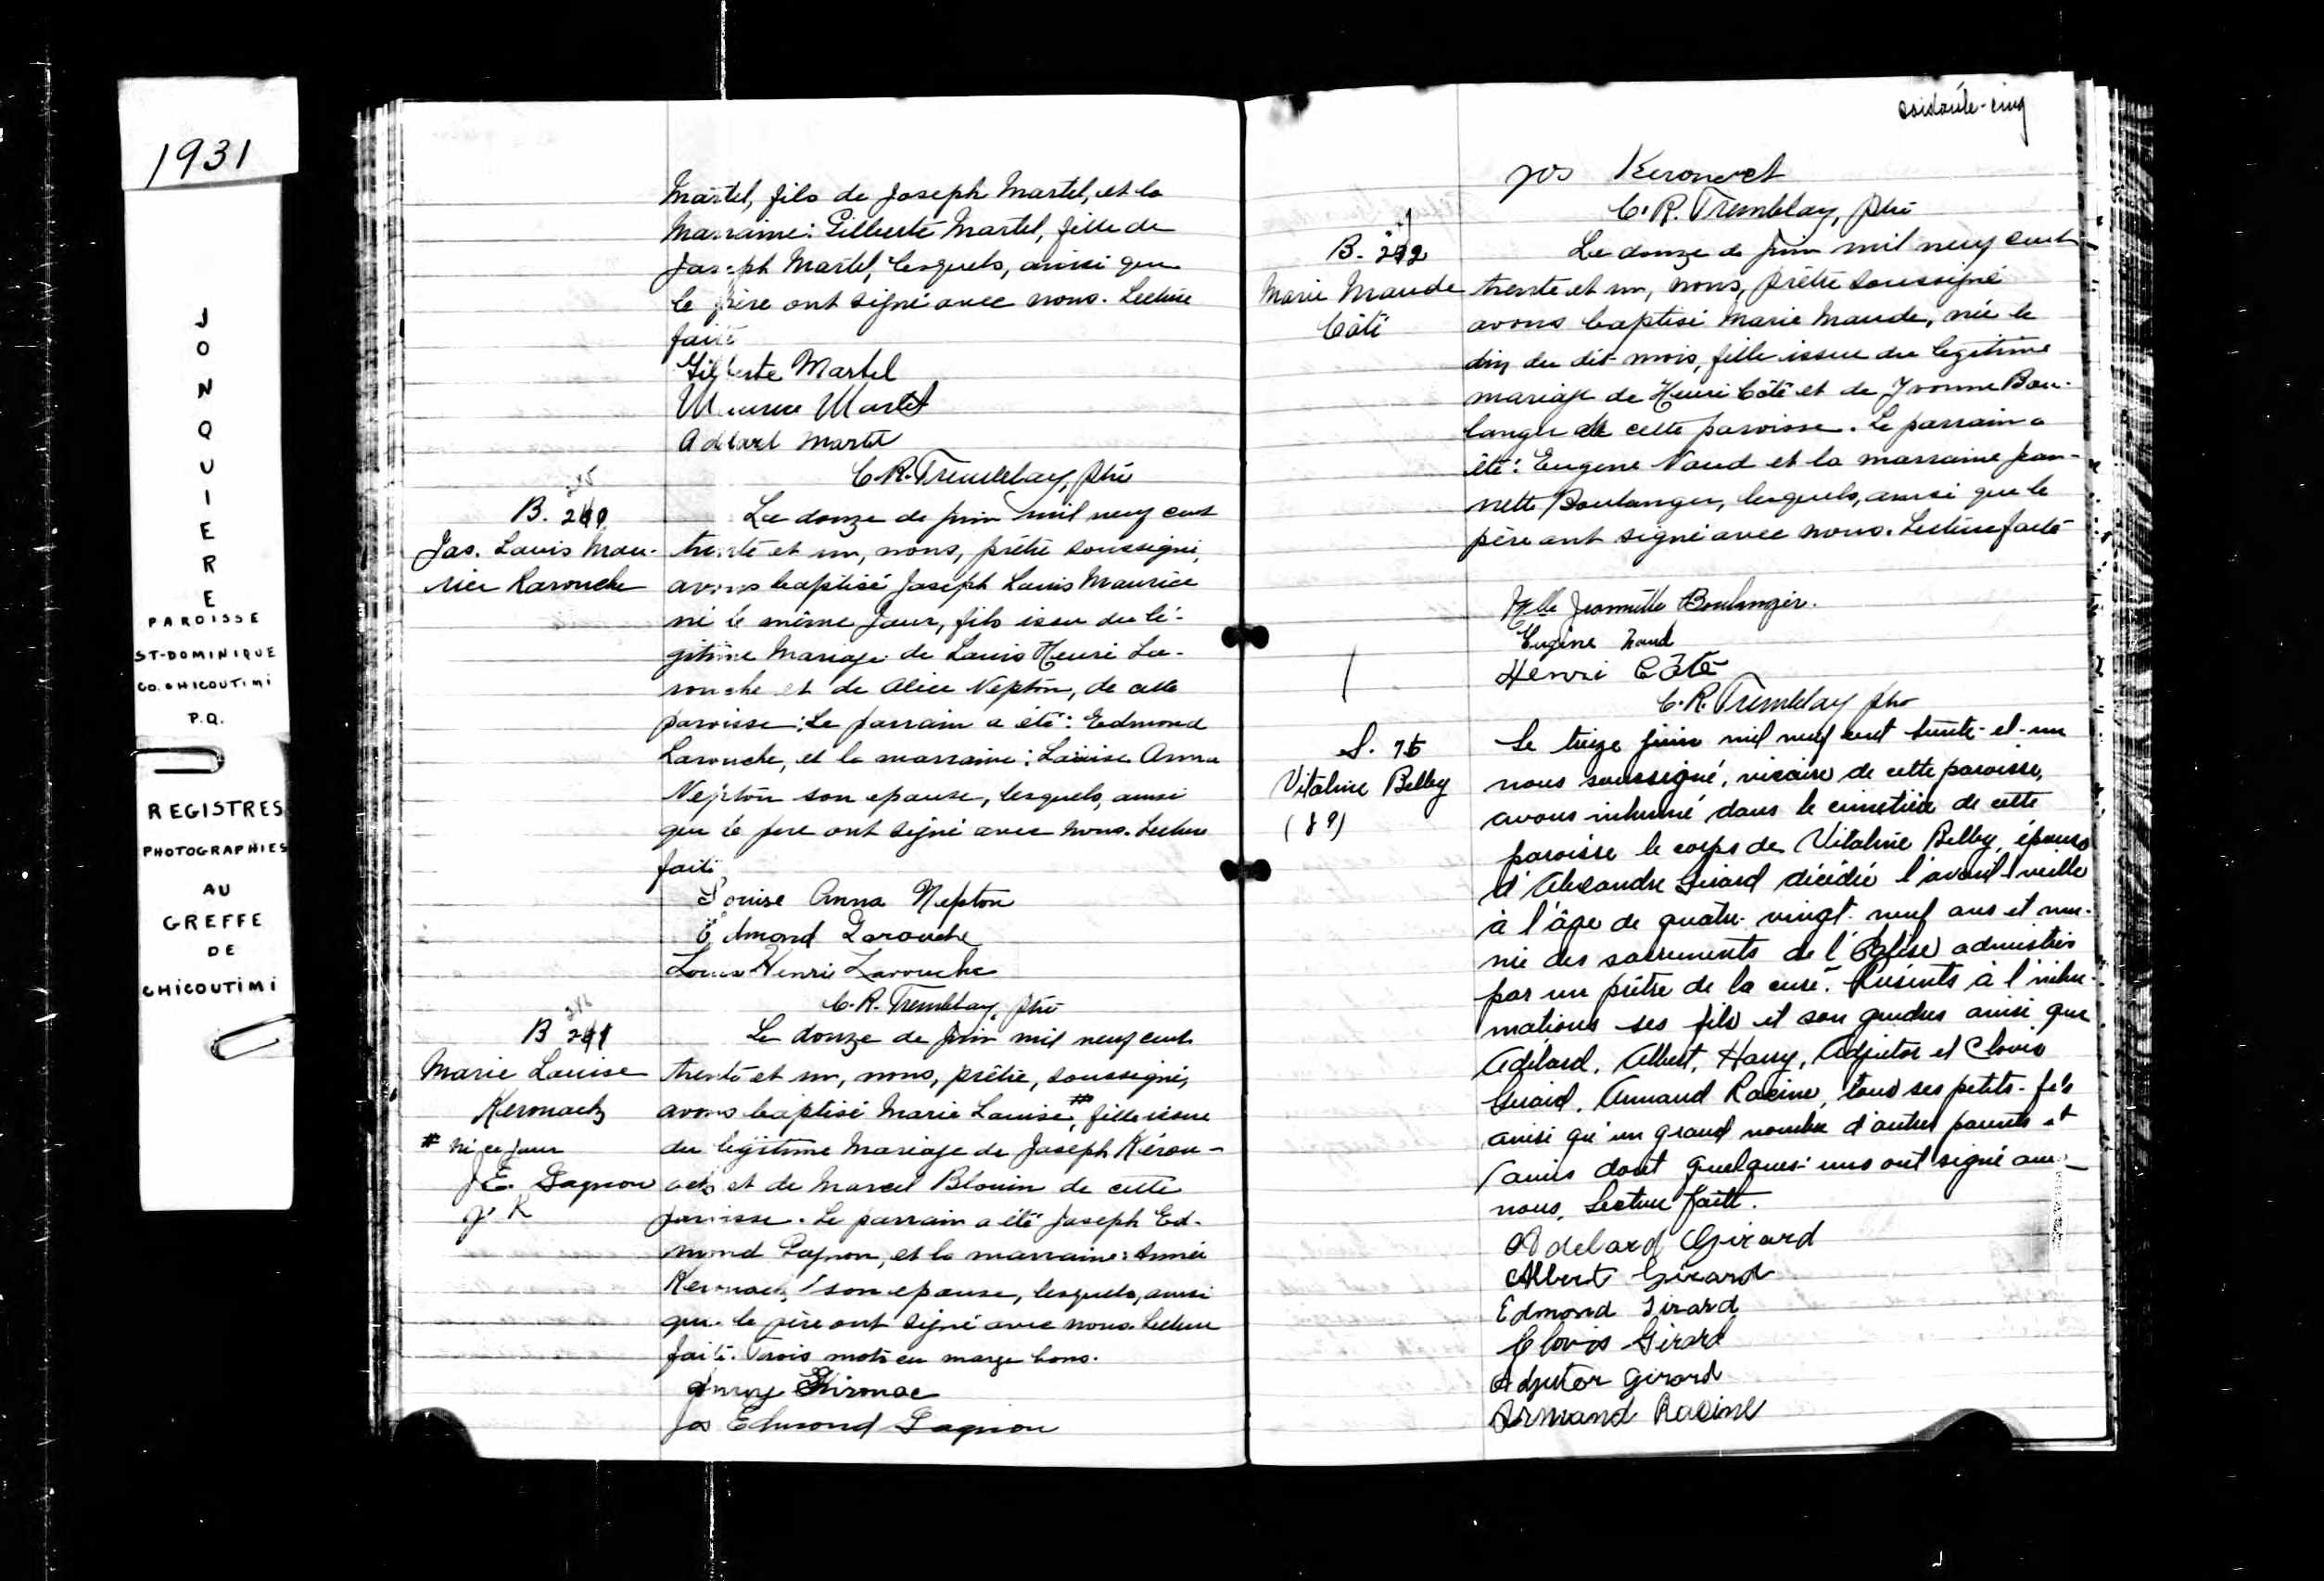 1931
JONQUIERE
PAROISSE
ST-DOMINIQUE
CO. CHICOUTIMI
P.Q.
REGISTRES
PHOTOGRAPHIES
AU
GREFFE
DE
CHICOUTIMI
Martel, fils de Joseph Martel, et la
Marraine: Gilberte Martel, fille de
Joseph Martel, lesquels, ainsi que
le père ont signé avec nous. Lecture
faite
Gilberte Martel
Maurice Martel
Adelard Martel
C.R. Tremblay, ptre
B. 240
Jos. Louis Mau-
rice Larouche
Le douze de juin mil neuf cent
trente et un, nous, prêtre soussigné,
avons baptisé Joseph Louis Maurice
né le même jour, fils issu du lé-
gitime Mariage de Louis Henri La-
rouche et de Alice Nepton, de cette
paroisse. Le parrain a été: Edmond
Larouche, et la marraine: Louise Anna
Nepton son epouse, lesquels, ainsi
que le père ont signé avec nous. Lecture
faite
Louise Anna Nepton
Edmond Larouche
Louis Henri Larouche
C.R. Tremblay, ptre
B 241
Marie Louise
Kerouack
# né ce jour
J.E. Gagnon
J. K
Le douze de juin mil neuf cent
trente et un, nous, prêtre, soussigné,
avons baptisé Marie Louise #, fille issue
du legitime Mariage de Joseph Kérou-
ack et de Marcel Blouin de cette
paroisse. Le parrain a été Joseph Ed-
mond Gagnon, et la marraine:
Kerouack, son epouse, lesquels, ainsi
que le père ont signé avec nous. Lecture
faite. Trois mots en marge bons.
Jos Edmond Gagnon
soixante-cinq
Jos
C.R. Tremblay, ptre
B. 242
Marie Maude
Côté
Le douze de juin mil neuf cent
trente et un, nous, prêtre soussigné
avons baptisé Marie Maude, née le
dix du dit mois, fille issue du legitime
mariage de Henri Côté et de Yvonne Bou-
langer de cette paroisse. Le parrain a
été: Eugene Naud et la marraine Jean-
nette Boulanger, lesquels, ainsi que le
père ont signé avec nous. Lecture faite
Mlle Jeannette Boulanger.
Eugène Naud
Henri Côté
C.R. Tremblay ptre
S. 75
Vitaline Belley
(89)
Le treize juin mil neuf cent trente-et-un
nous soussigné, vicaire de cette paroisse,
avons inhumé dans le cimetière de cette
paroisse le corps de Vitaline Belley, épouse
d'Alexandre Girard décédée l'avant-veille
à l'âge de quatre-vingt-neuf ans et mu-
nie des sacrements de l'Eglise administrés
par un prêtre de la cure. Présents à l'inhu-
mation ses fils et son gendres ainsi que
Adélard, Albert, Harry, Adjutor et Clovis
Girard, Armand Racine, tous ses petits-fils
ainsi qu'un grand nombre d'autres parents et
amis dont quelques-uns ont signé avec
nous. Lecture faite.
Adelard Girard
Albert Girard
Edmond Girard
Clovis Girard
Adjutor Girard
Armand Racine